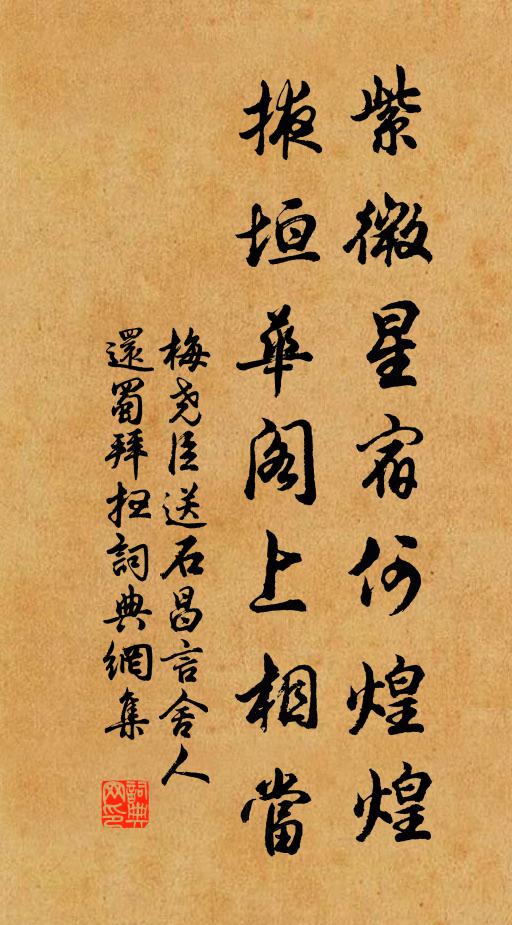 紫微星宿何煌煌
掖垣華阁上相當
梅尧臣送石昌言舍人
還蜀拜掃詞典網集
詞典網印